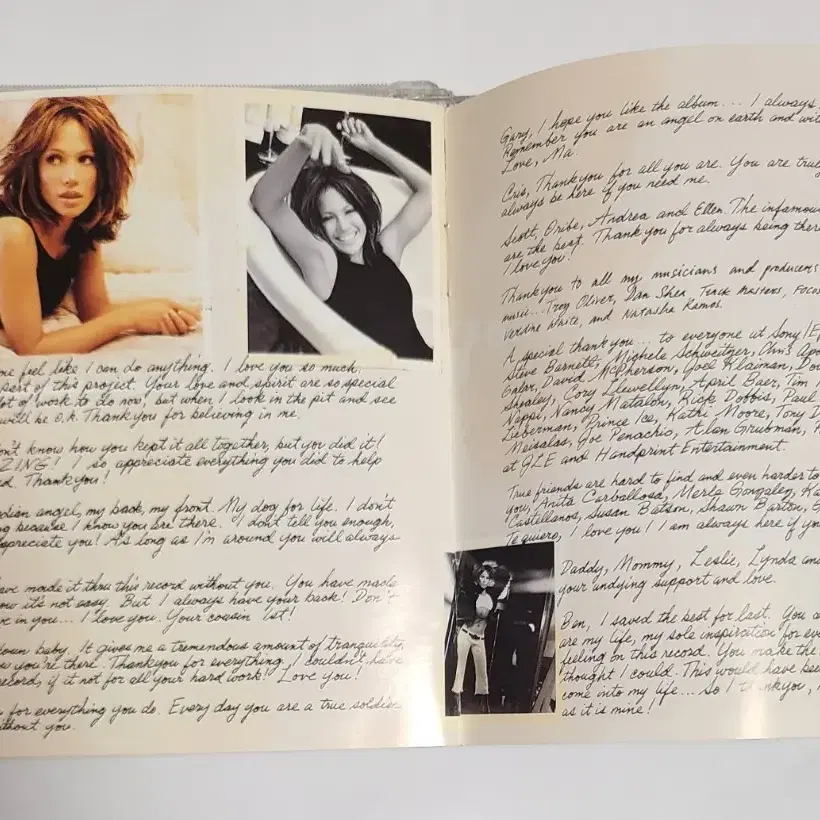 me feel like I can do anything. I love you so much.
part of this project. Your love and spirit are so special
lot of work to do now, but when I look in the pit and see
will be o.k. Thank you for believing in me.
don't know how you kept it all together, but you did it!
ZING! I so appreciate everything you did to help
Thank you!
angel, my back, my front. My dog for life. I don't
because I know you are there. I don't tell you enough,
appreciate you! As long as I'm around you will always
have made it thru this record without you. You have made
it's not easy. But I always have your back! Don't
in you... I love you. Your cousin 1st!
down baby. It gives me a tremendous amount of tranquility
you're there. Thankyou for everything, I couldn't have
record, if it not for all your hard work! Love you!
for everything you do. Every day you are a true soldier
without you.
Gary, I hope you like the album... I always
Remember you are an angel on earth and
Love, Ma.
Cris, Thankyou for all you are. You are
always be here if you need me.
Scott, Oribe, Andrea and Ellen. The
are the best. Thank you for always being
I love you!
Thankyou to all my musicians and producers
music... Troy Oliver, Dan Shea, Track Masters,
Verdine White, and Natasha Ramos.
A special thank you... to everyone at Sony
Steve Barnett, Michele Schweitzer,
David McPherson, Joel Klaiman,
Shealey, Cory Llewellyn, April Baer, Tim
Nappi, Nancy Matalon, Rick Dobbis, Paul
Lieberman, Prince Ice, Kathi Moore, Tony
Meisalas, Joe Penachio, Alan Grubman,
at JLE and Handprint Entertainment.
True friends are hard to find and even harder to
you, Anita Carballosa, Merle Gonzalez,
Castellanos, Susan Batson, Shawn Barton,
Te quiero, I love you! I am always here if
Daddy, Mommy, Leslie, Lynda and
your undying support and love.
Ben, I saved the best for last. You
are my life, my sole inspiration for
feeling on this record. You make the
thought I could. This would have
come into my life... So I thankyou,
as it is mine!